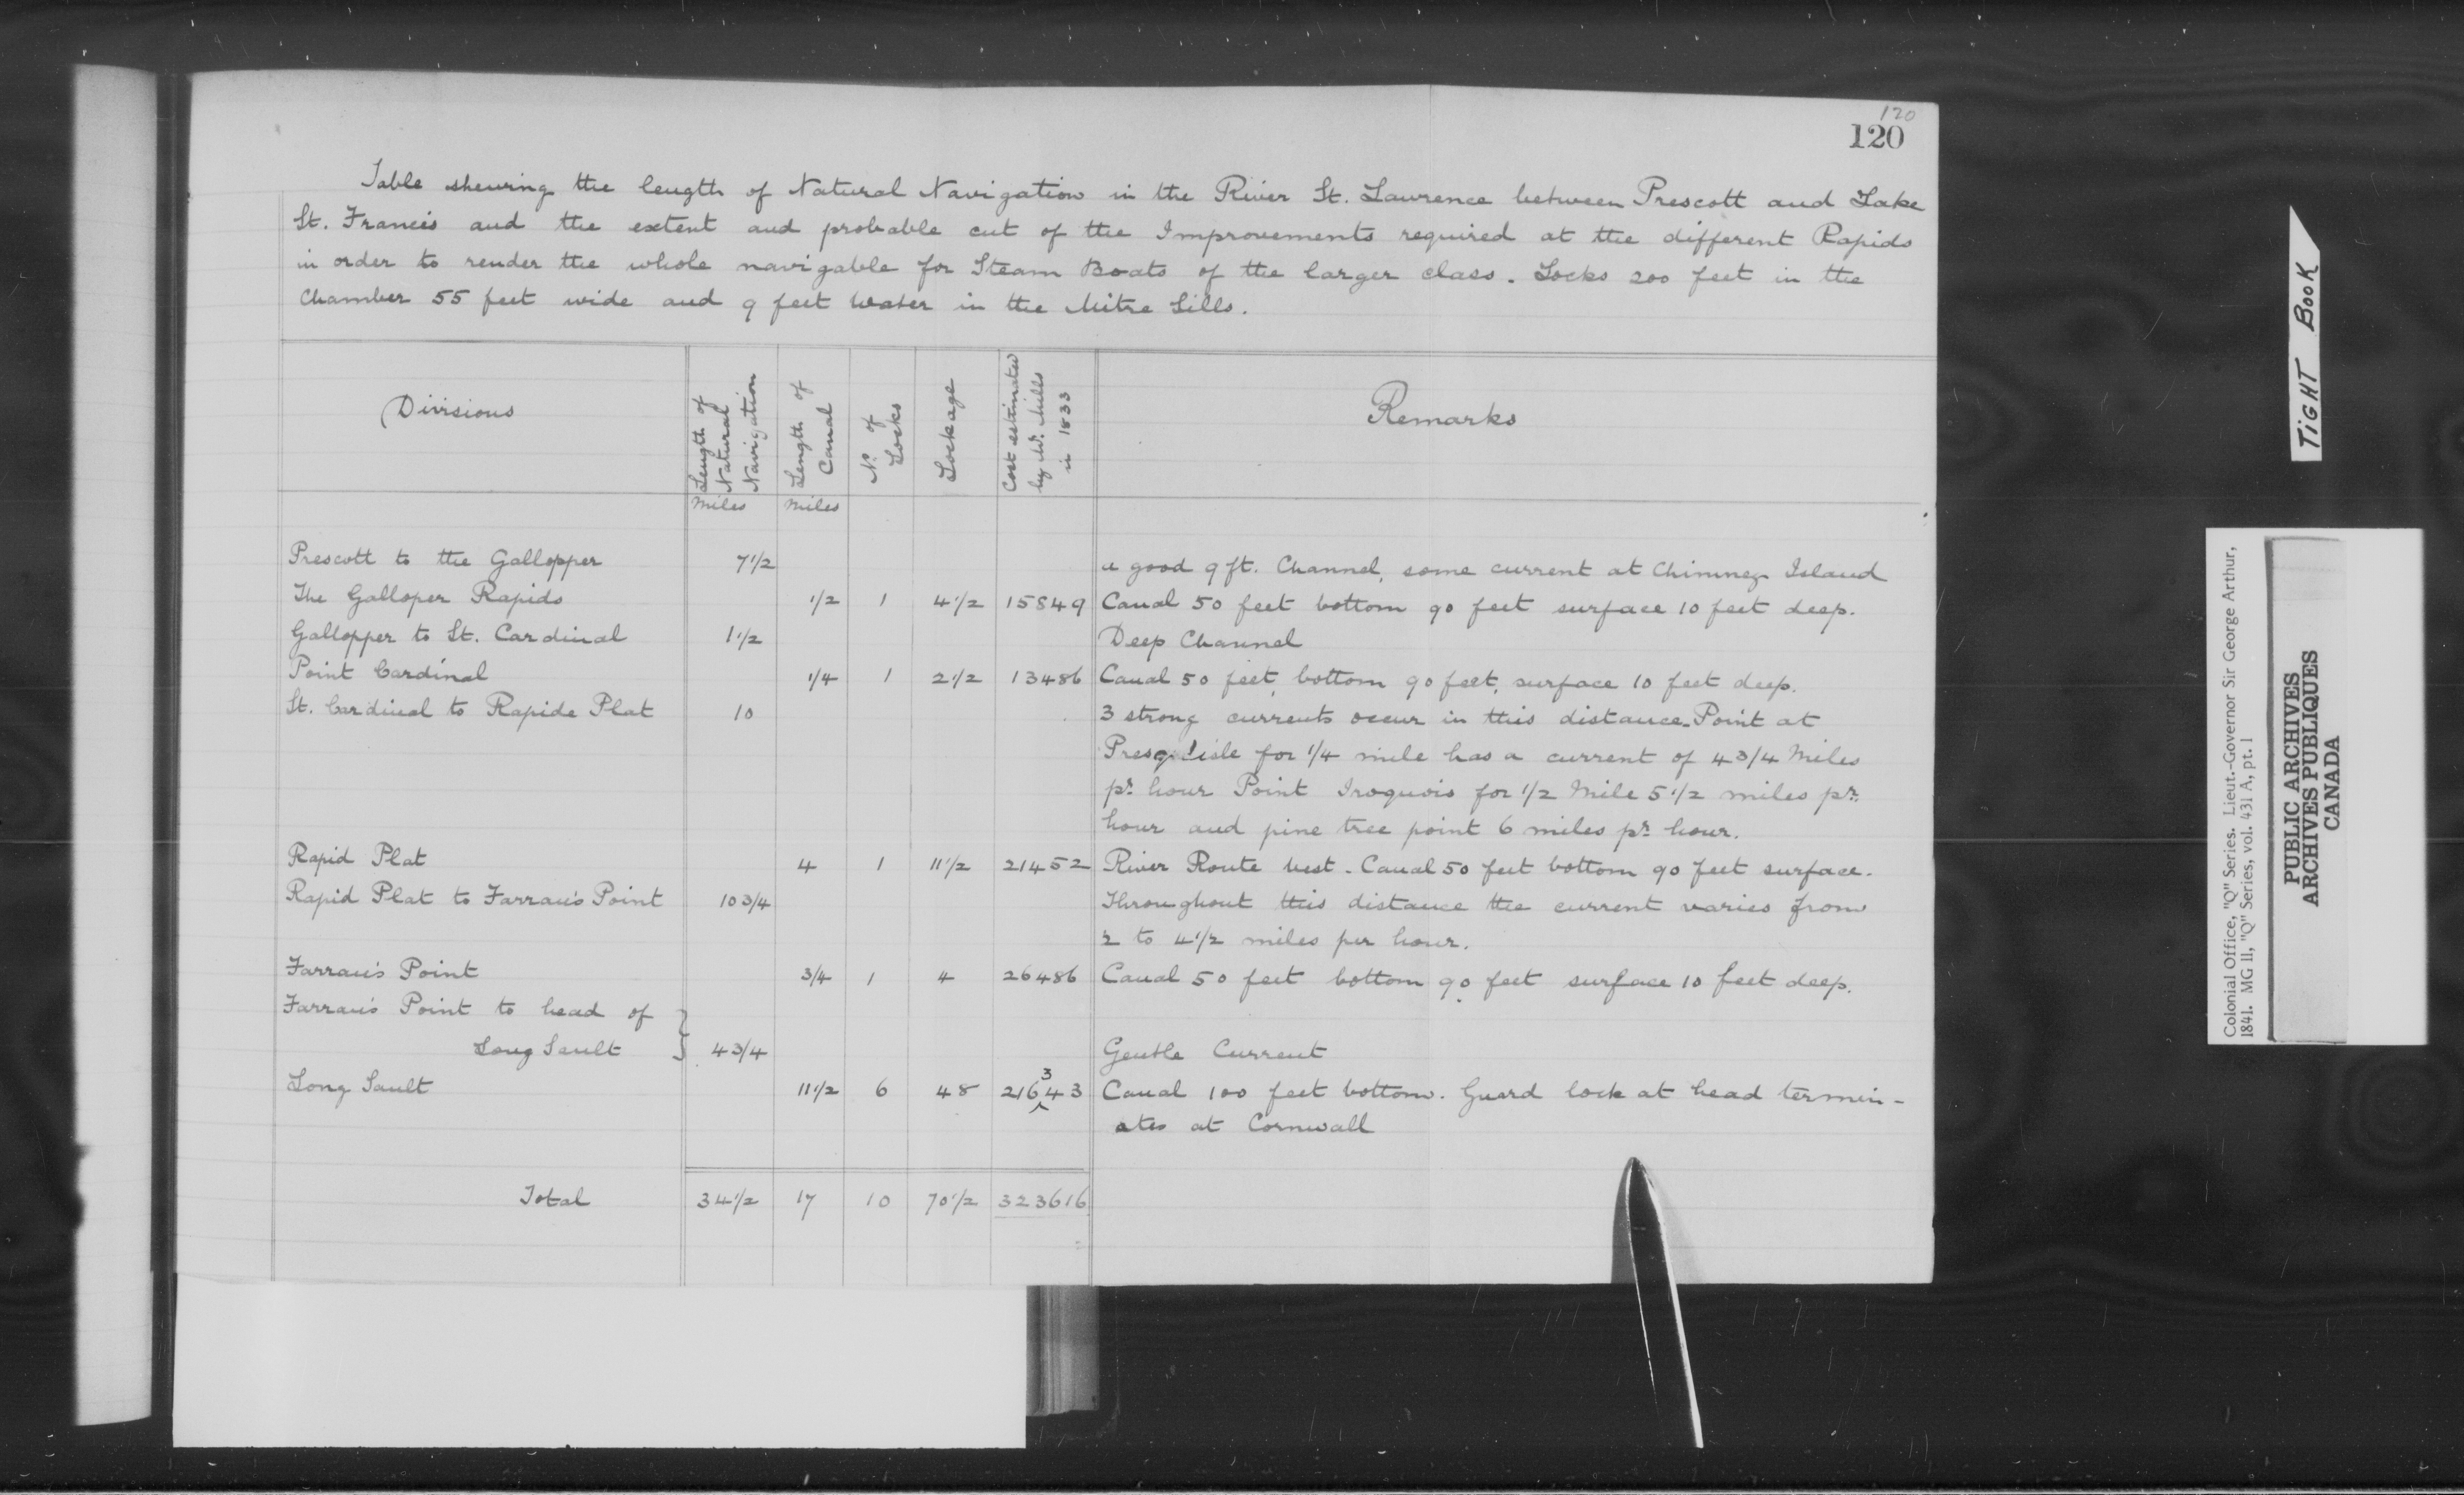 120
120
Table shewing the length of Natural Navigation in the River St. Lawrence between Prescott and Lake
St. Francis and the extent and probable cut of the Improvements required at the different Rapids
in order to render the whole navigable for Steam Boats of the larger class. Locks 200 feet in the
Chamber 55 feet wide and 9 feet Water in the Mitre Sills.
Divisions
Length of Natural Navigation
Length of Canal
No. of Locks
Lockage
Cost estimated by Mr. Mills in 1833
Remarks
Miles Miles
Prescott to the Gallopper 7 1/2 a good 9 ft. Channel, some current at Chimney Island
The Galloper Rapids 1/2 1 4 1/2 15849 Canal 50 feet bottom 90 feet surface 10 feet deep.
Gallopper to St. Cardinal 1 1/2 Deep Channel
Point Cardinal 1/4 1 2 1/2 13486 Canal 50 feet, bottom 90 feet, surface 10 feet deep.
St. Cardinal to Rapide Plat 10 3 strong currents occur in this distance - Point at
Presq'lisle for 1/4 mile has a current of 4 3/4 Miles
pr. hour Point Iroquois for 1/2 Mile 5 1/2 miles pr.
hour and pine tree point 6 miles pr. hour.
Rapid Plat 4 1 11 1/2 21452 River Route best - Canal 50 feet bottom 90 feet surface.
Rapid Plat to Farran's Point 10 3/4 Throughout this distance the current varies from
2 to 4 1/2 miles per hour.
Farran's Point 3/4 1 4 26486 Canal 50 feet bottom 90 feet surface 10 feet deep.
Farran's Point to head of
Long Sault 4 3/4 Gentle Current
Long Sault 11 1/2 6 48 216343 Canal 100 feet bottom. Guard lock at head termin-
ates at Cornwall
Total 34 1/2 17 10 70 1/2 323616
TIGHT BOOK
Colonial Office, "Q" Series. Lieut.-Governor Sir George Arthur,
1841. MG 11, "Q" Series, vol. 431 A, pt. 1
PUBLIC ARCHIVES
ARCHIVES PUBLIQUES
CANADA